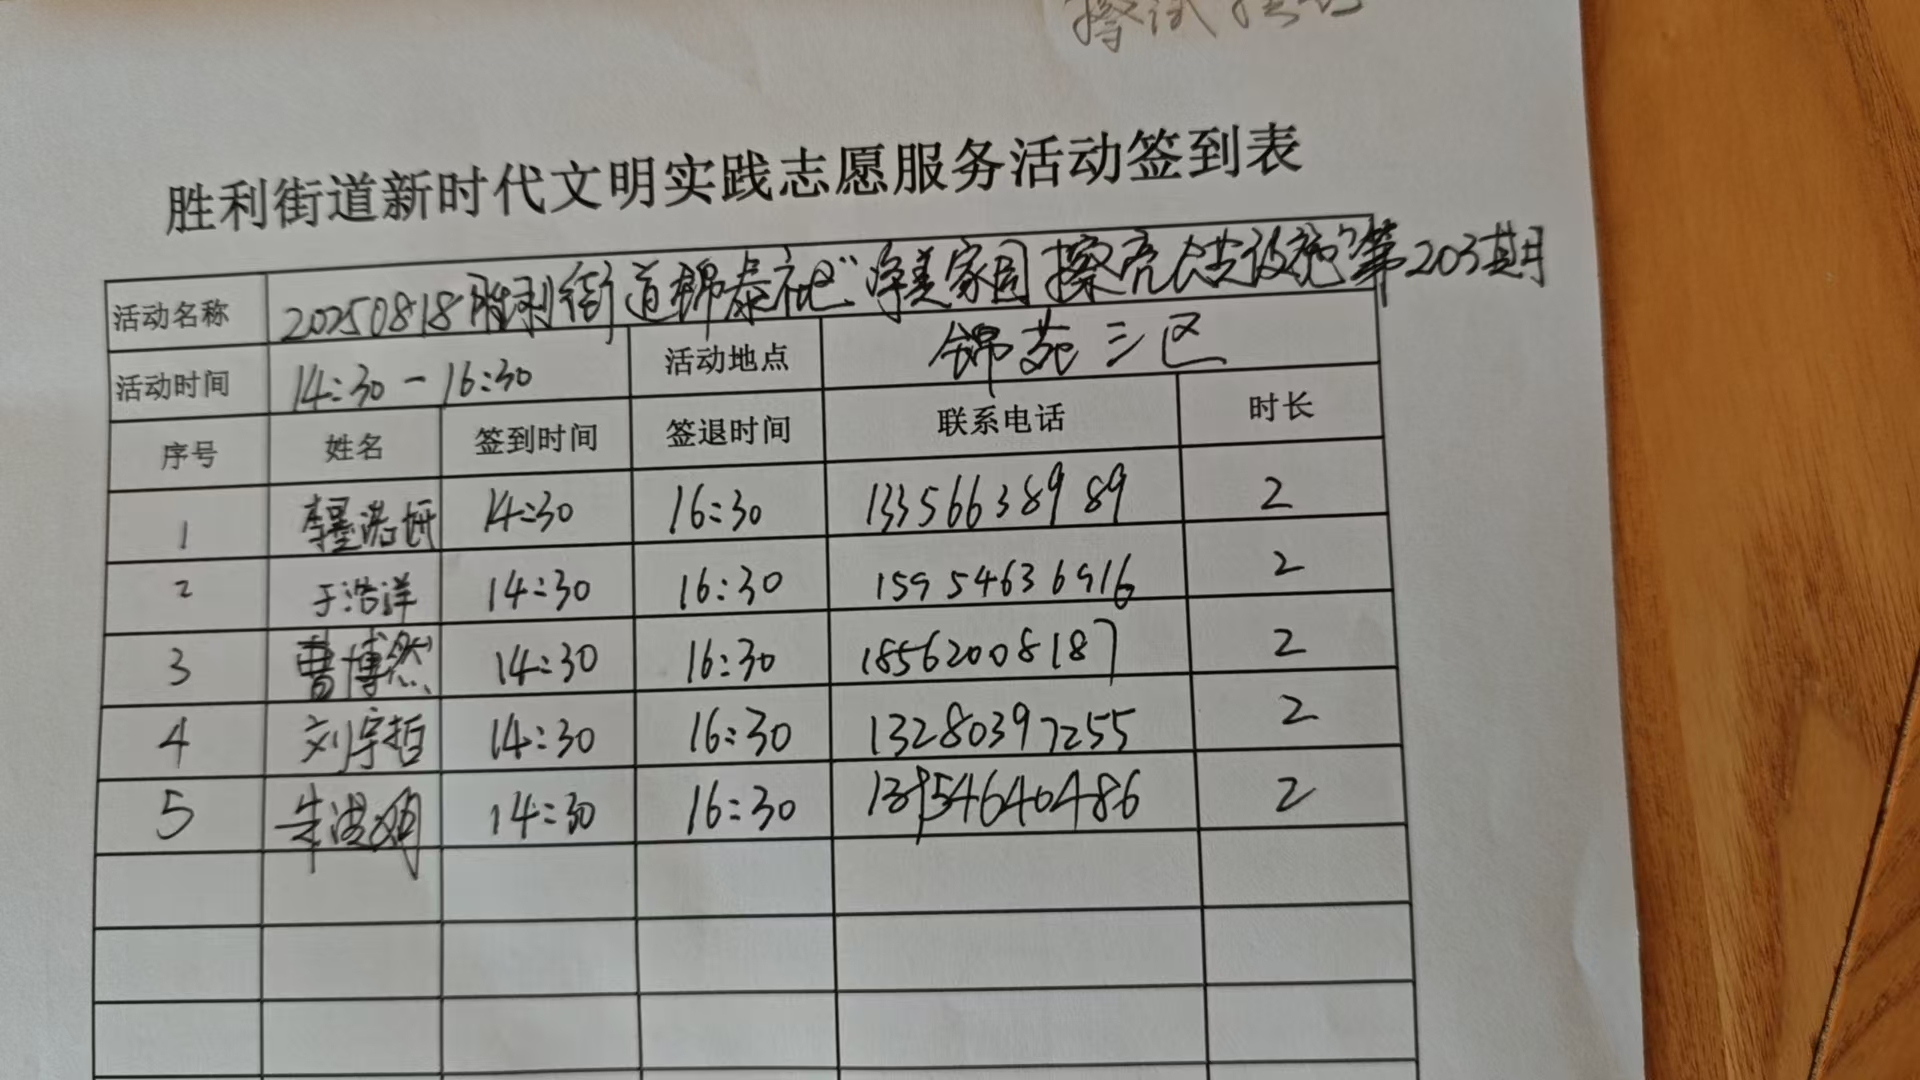 擦试
胜利街道新时代文明实践志愿服务活动签到表
活动名称 20250818胜利街道锦泰社区“净美家园 擦亮公共设施”第203期
活动时间 14:30-16:30 活动地点 锦苑三区
序号 姓名 签到时间 签退时间 联系电话 时长
1 14:30 16:30 13356638989 2
2 于浩洋 14:30 16:30 15954636916 2
3 曹博然 14:30 16:30 18562008187 2
4 刘宇哲 14:30 16:30 13280397255 2
5 14:30 16:30 13954640486 2